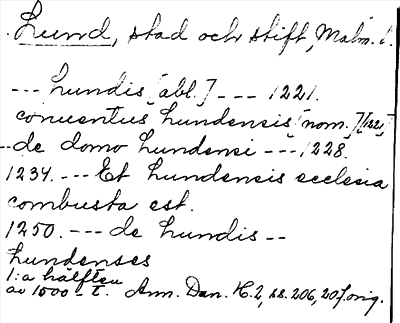 Lund, stad och stift, Malm. l.
--- Lundis [abl.] --- 1221.
conventus Lundensis [nom.] [1221]
--de domo Lundensi --- 1228.
1234. --- Et Lundensis ecclesia
combusta est.
1250. --- de Lundis --
Lundenses
1:a hälften
av 1500-t. Ann. Dan. H. 2, ss. 206, 207. orig.